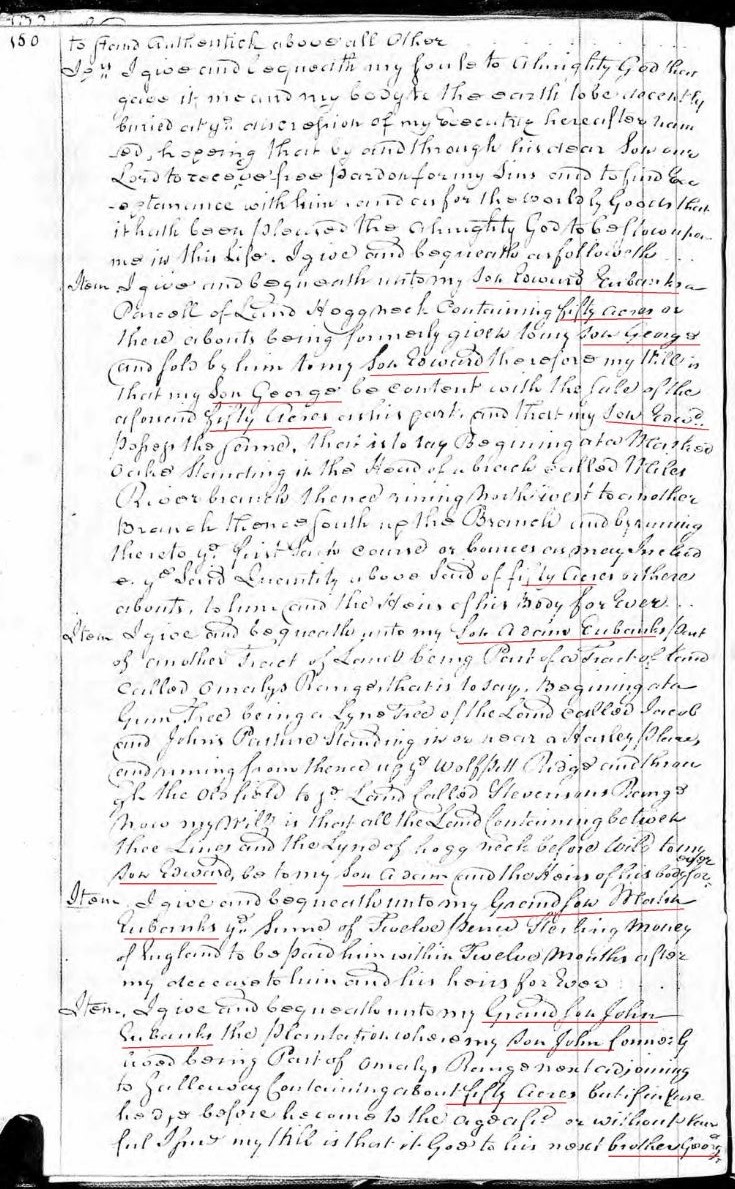 150
to stand Authentick above all Other
I give and bequeath my soule to Almighty God that
gave it me and my body to the earth to be decently
buried at ye discression of my Executrix hereafter nam
-ed, hopeing that by and through his dear Son our
Lord to receive free Pardon for my Sins and to find Ex
-ceptanance with him and as for the worldly Goods that
it hath been pleased the Almighty God to bestow upon
me in this Life. I give and bequeath as followeth
Item I give and bequeath unto my Son Edward Eubanks a
Parcell of Land Hogg neck Containing fifty acres or
there abouts being formerly given to my Son George
and sold by him to my Son Edward therefore my Will is
that my Son George be content with the Sale of the
aforsaid fifty Acres as his part, and that my Son Edwd.
Posess the same, that is to say Begining at a Marked
Oake Standing in the Head of a branch called Miles
River branch thence runing North west to another
Branch thence South up the Branch and by runing
thereto ye first course or bounces as may Includ
e ye Said Quantity above Said of fifty Acres or there
abouts, to him and the Heirs of his Body for Ever
Item I give and bequeath unto my Son Adam Eubanks Part
of another Tract of Land being Part of a Tract of Land
Called Omalys Range that is to say, Begining at a
Gum Tree being a Lyne Tree of the Land called Jacob
and John's Pasture Standing in or near a Harley
and runing from thence up ye Wolfpitt Ridge and throu
gh the Old field to ye Land Called Stevensons Range
Now my Will is that all the Land Containing betwek
thee Lines and the Lyne of hogg neck before Wild to my
Son Edward, be to my Son Adam and the Heirs of his body for
ever
Item, I give and bequeath unto my Grandson
Eubanks ye Sume of Twelve Pence Sterling Money
of England to be paid him within Twelve Months after
my decease to him and his heirs for Ever
Item, I give and bequeath unto my Grand Son John
Eubanks the Plantation where my Son John formerly
lived being Part of Omalys Range next adjoining
to Gallaway Containing about fifty Acres but if in Case
he dye before he come to the age or without Law
ful Isue my Will is that it Goe to his next brother George